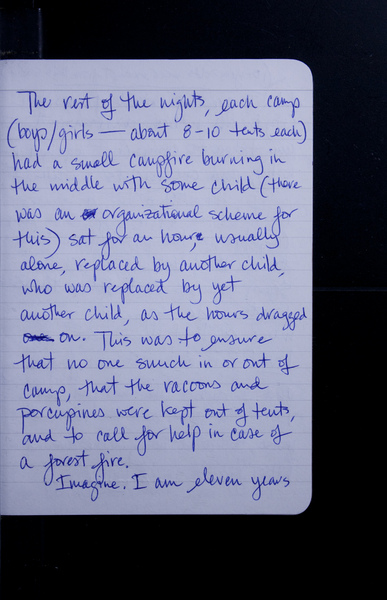 The rest of the nights, each camp
(boys/girls — about 8-10 tents each)
had a small campfire burning in
the middle with some child (there
was an organizational scheme for
this) sat for an hour, usually
alone, replaced by another child,
who was replaced by yet
another child, as the hours dragged
on. This was to ensure
that no one snuck in or out of
camp, that the racoons and
porcupines were kept out of tents,
and to call for help in case of
a forest fire.
Imagine. I am eleven years